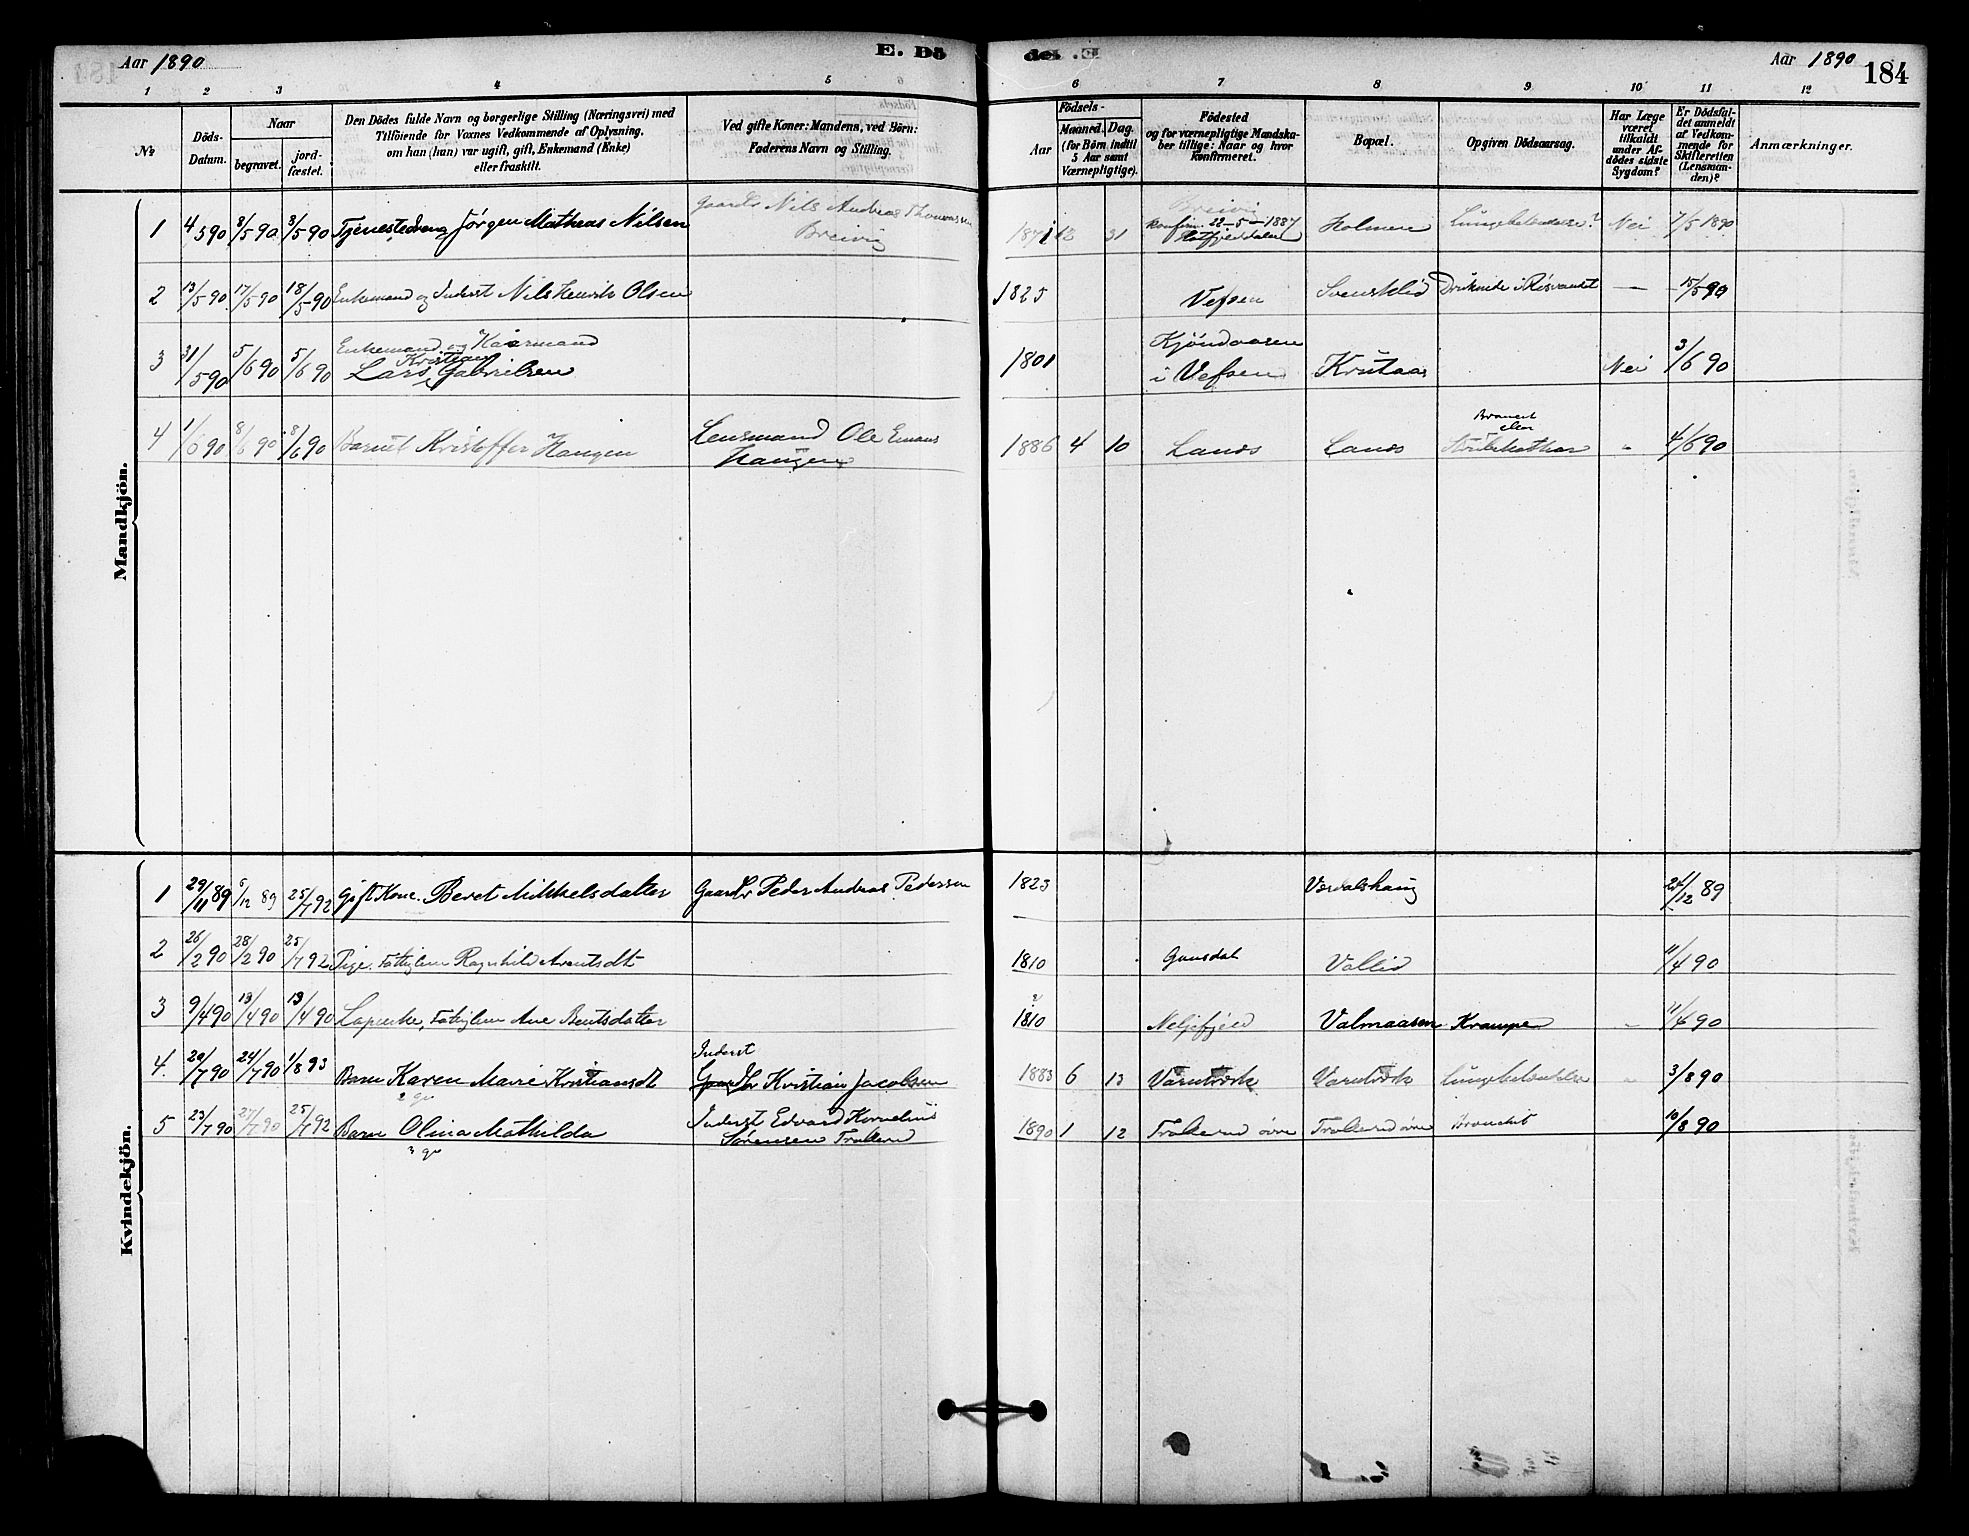 Aar 1890
E. Dö
döt. E
Aar 1890
184
1 2 3 4 5 6 7 8 9 10 11 12
№
Döds-Datum.
Naar
begravet.
jord-fæstet.
Den Dödes fulde Navn og borgerlige Stilling (Næringsvei) med
Tilföiende for Voxnes Vedkommende af Oplysning,
om han (hun) var ugift, gift, Enkemand (Enke)
eller fraskilt.
Ved gifte Koner: Mandens, ved Börn:
Faderens Navn og Stilling.
Födsels-
Aar
Maaned. Dag.
(for Börn indtil
5 Aar samt
Værnepligtige).
Födested
og for værnepligtige Mandska-
ber tillige: Naar og hvor
konfirmeret.
Bopæl.
Opgiven Dödsaarsag.
Har Læge
været
tilkaldt
under Af-
dödes sidste
Sygdom?
Er Dödsfal-
det anmeldt
af Vedkom-
mende for
Skifteretten
(Lensman-
den)?
Anmærkninger.
Mandkjön.
1 4/5 90 8/5 90 8/5 90 Tjenestedreng Jørgen Matheas Nilsen Gaardbr Nils Andreas Thomassen Breivig 1871 12 31 Breivig konfirm. 22-5-1887 Hatfjelddalen Holmen Lungebetændelse? Nei 7/5 1890
2 13/5 90 17/5 90 18/5 90 Enkemand og Inderst Nils Henrik Olsen 1825 Vefsen Svensklid Druknede i Røsvandet — 15/5 90
3 31/5 90 5/6 90 5/6 90 Enkemand og Kaarmand Lars Kristian Gabrielsen 1801 i Vefsen Krutaa Nei 3/6 90
4 1/6 90 8/6 90 8/6 90 Barnet Kristoffer Haugen Lensmand Ole Emaus Haugen 1886 4 10 Lands Lands Bronchit eller Strubekathar " 4/6 90
Kvindekjön.
1 29/11 89 6/12 89 25/7 92 Gift Kone. Beret Mikkelsdatter Gaardbr Peder Andreas Pedersen 1823 Værdalshaug /12 89
2 26/2 90 28/2 90 25/7 92 Pige. Fattiglem Ragnhild Arentsdt 1810 Vallid 11/4 90
3 9/4 90 13/4 90 13/4 90 Lapenke, Fattiglem Ane Bentsdatter ? 1810 Valmaasen Krampe " 11/4 90
4. 20/7 90 24/7 90 1/8 93 Barn Karen Marie Kristiansdt Inderst Gaardbr Kristian Jacobsen 1883 6 13 Varntræsk Varntræsk Lungebetændelse " 3/8 90
5 23/7 90 27/7 90 25/7 92 Barn Olina Mathilda Inderst Edvard Kornelius Sørensen Trolerud 1890 1 12 Trolerud øvre Trolerud øvre Bronchit 10/8 90